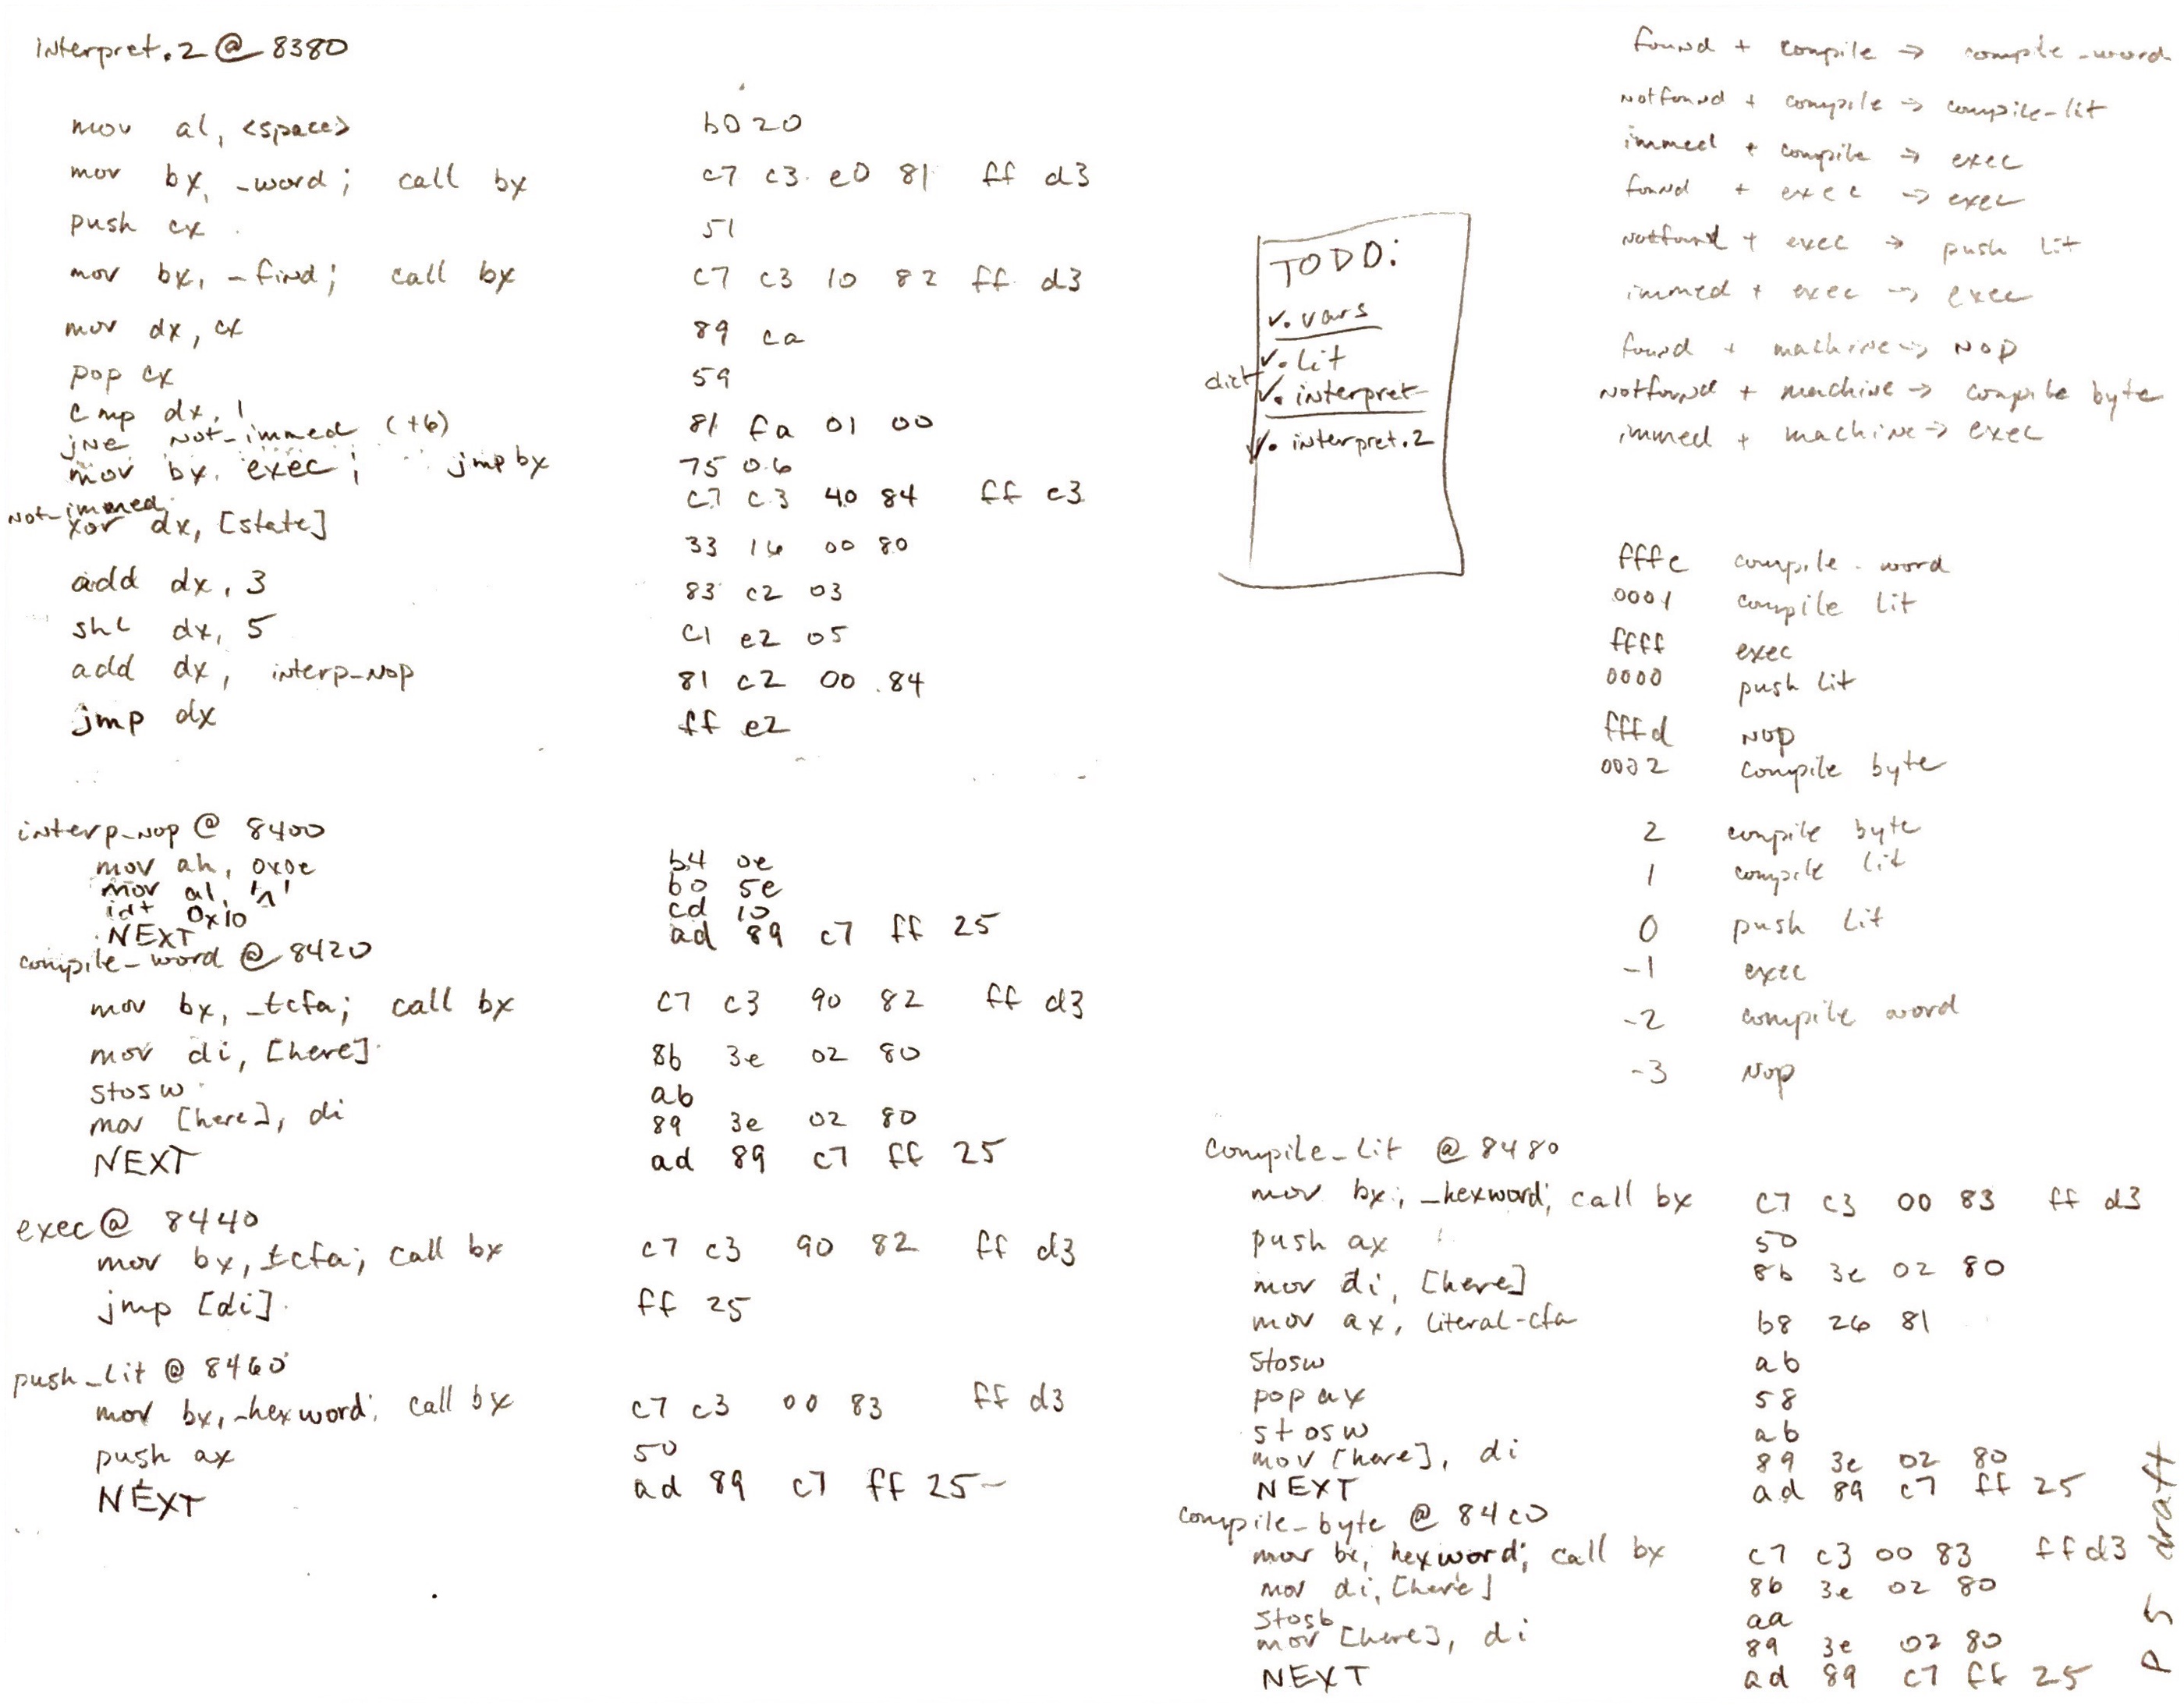 interpret.2 @ 8380
mov al, <space> b0 20
mov bx, _word; call bx c7 c3 e0 81 ff d3
push cx 51
mov bx, _find; call bx c7 c3 10 82 ff d3
mov dx, cx 89 ca
pop cx 59
cmp dx, 1 81 fa 01 00
jne not_immed (+6) 75 06
mov bx, exec; jmp bx c7 c3 40 84 ff e3
not_immed:
xor dx, [state] 33 16 00 80
add dx, 3 83 c2 03
shl dx, 5 c1 e2 05
add dx, interp_nop 81 c2 00 84
jmp dx ff e2
interp_nop @ 8400
mov ah, 0x0e b4 0e
mov al, '^' b0 5e
int 0x10 cd 10
NEXT ad 89 c7 ff 25
compile_word @ 8420
mov bx, _tcfa; call bx c7 c3 90 82 ff d3
mov di, [here] 8b 3e 02 80
stosw ab
mov [here], di 89 3e 02 80
NEXT ad 89 c7 ff 25
exec @ 8440
mov bx, _tcfa; call bx c7 c3 90 82 ff d3
jmp [di] ff 25
push_lit @ 8460
mov bx, _hexword; call bx c7 c3 00 83 ff d3
push ax 50
NEXT ad 89 c7 ff 25
TODO:
✓. vars
✓. lit
dict ✓. interpret
✓. interpret.2
found + compile → compile_word
notfound + compile → compile-lit
immed + compile → exec
found + exec → exec
notfound + exec → push lit
immed + exec → exec
found + machine → nop
notfound + machine → compile byte
immed + machine → exec
fffe compile word
0001 compile lit
ffff exec
0000 push lit
fffd nop
0002 compile byte
2 compile byte
1 compile lit
0 push lit
-1 exec
-2 compile word
-3 nop
compile_lit @ 8480
mov bx, _hexword; call bx c7 c3 00 83 ff d3
push ax 50
mov di, [here] 8b 3e 02 80
mov ax, literal-cfa b8 26 81
stosw ab
pop ax 58
stosw ab
mov [here], di 89 3e 02 80
NEXT ad 89 c7 ff 25
compile_byte @ 84c0
mov bx, hexword; call bx c7 c3 00 83 ff d3
mov di, [here] 8b 3e 02 80
stosb aa
mov [here], di 89 3e 02 80
NEXT ad 89 c7 ff 25
p5 draft